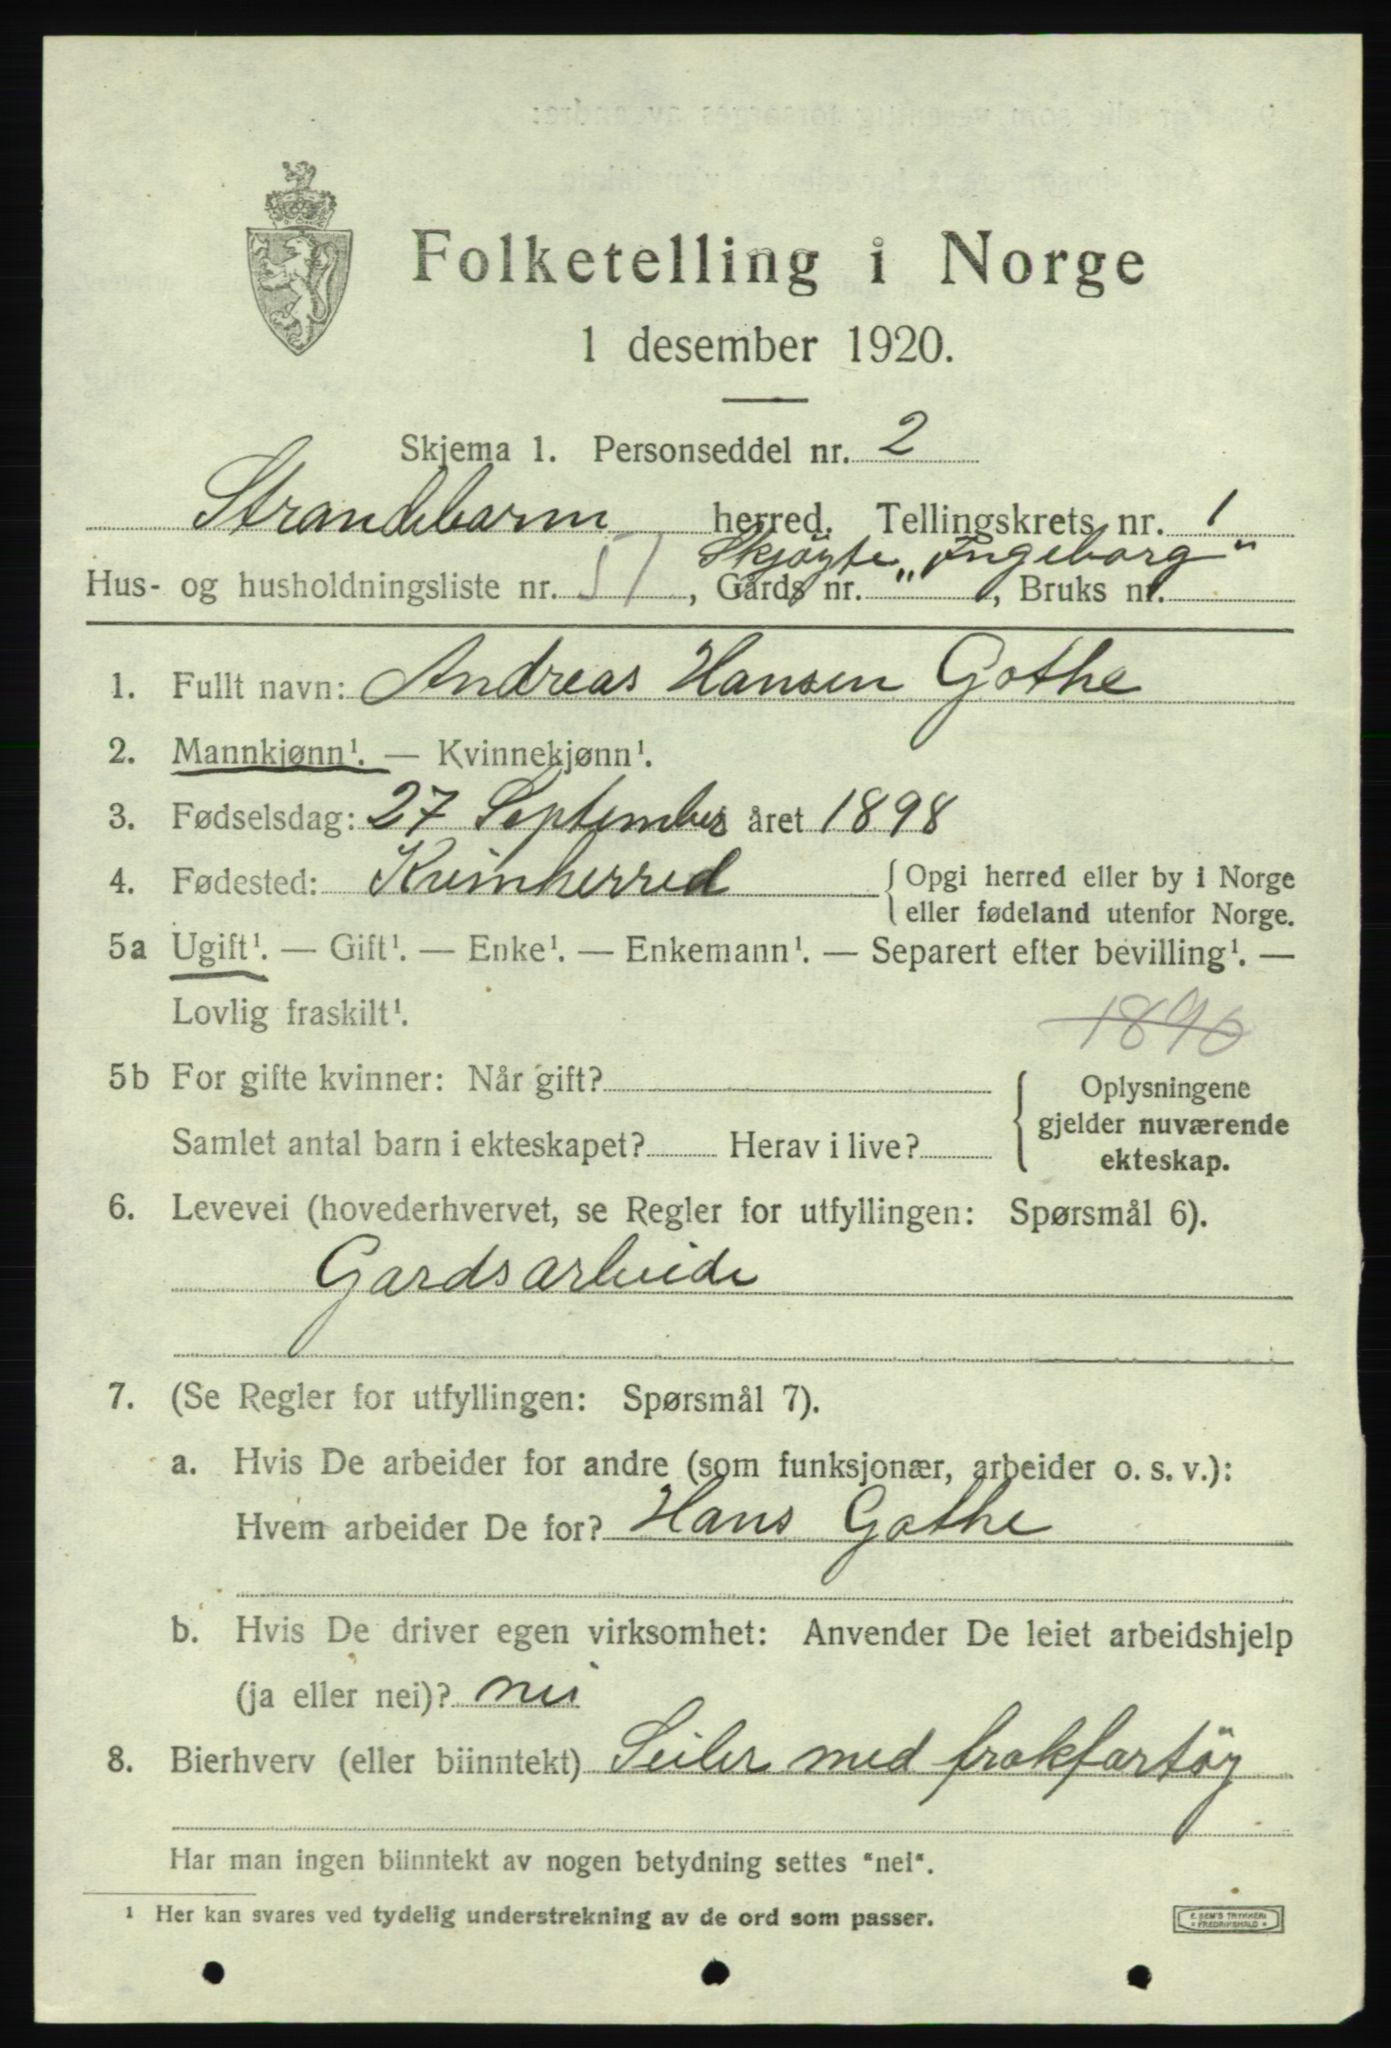 Folketelling i Norge
1 desember 1920.
Skjema 1. Personseddel nr. 2
Strandebarm herred. Tellingskrets nr. 1
Skjøyte „Ingeborg“
Hus- og husholdningsliste nr. 57, Gårds nr. , Bruks nr.
1. Fullt navn: Andreas Hansen Gothe
2. Mannkjønn¹. — Kvinnekjønn¹.
3. Fødselsdag: 27 September året 1898
4. Fødested: Kvinherred { Opgi herred eller by i Norge
eller fødeland utenfor Norge.
5a Ugift¹. — Gift¹. — Enke¹. — Enkemann¹. — Separert efter bevilling¹. —
Lovlig fraskilt¹.
5b For gifte kvinner: Når gift? { Oplysningene
gjelder nuværende
Samlet antal barn i ekteskapet? Herav i live?
ekteskap.
6. Levevei (hovederhvervet, se Regler for utfyllingen: Spørsmål 6).
Gardsarbeide
7. (Se Regler for utfyllingen: Spørsmål 7).
a. Hvis De arbeider for andre (som funksjonær, arbeider o. s. v.):
Hvem arbeider De for? Hans Gothe
b. Hvis De driver egen virksomhet: Anvender De leiet arbeidshjelp
(ja eller nei)? nei
8. Bierhverv (eller biinntekt) Seiler med fraktfartøy
Har man ingen biinntekt av nogen betydning settes "nei".
¹ Her kan svares ved tydelig understrekning av de ord som passer.
E. SEM'S TRYKKERI
FREDRIKSHALD